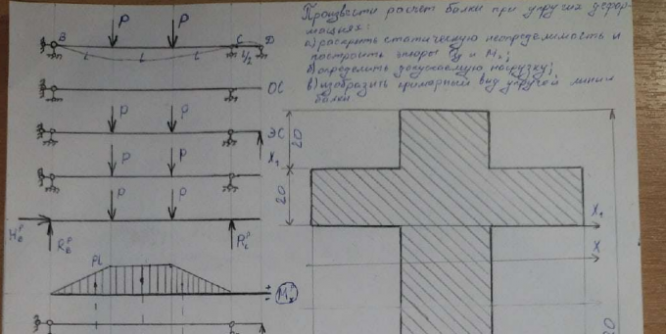 Произвести расчет балки при упругих дефор-
мациях:
а) раскрыть статическую неопределимость и
построить эпюры Qy и Mx;
б) определить допускаемую нагрузку;
в) изобразить примерный вид упругой линии
балки
P P
B C D
L L L L/2
ОС
P P
ЭС
X₁
P P
P P
H_B^P R_B^P R_C^P
PL
M_P
20
20
X₁
X
20